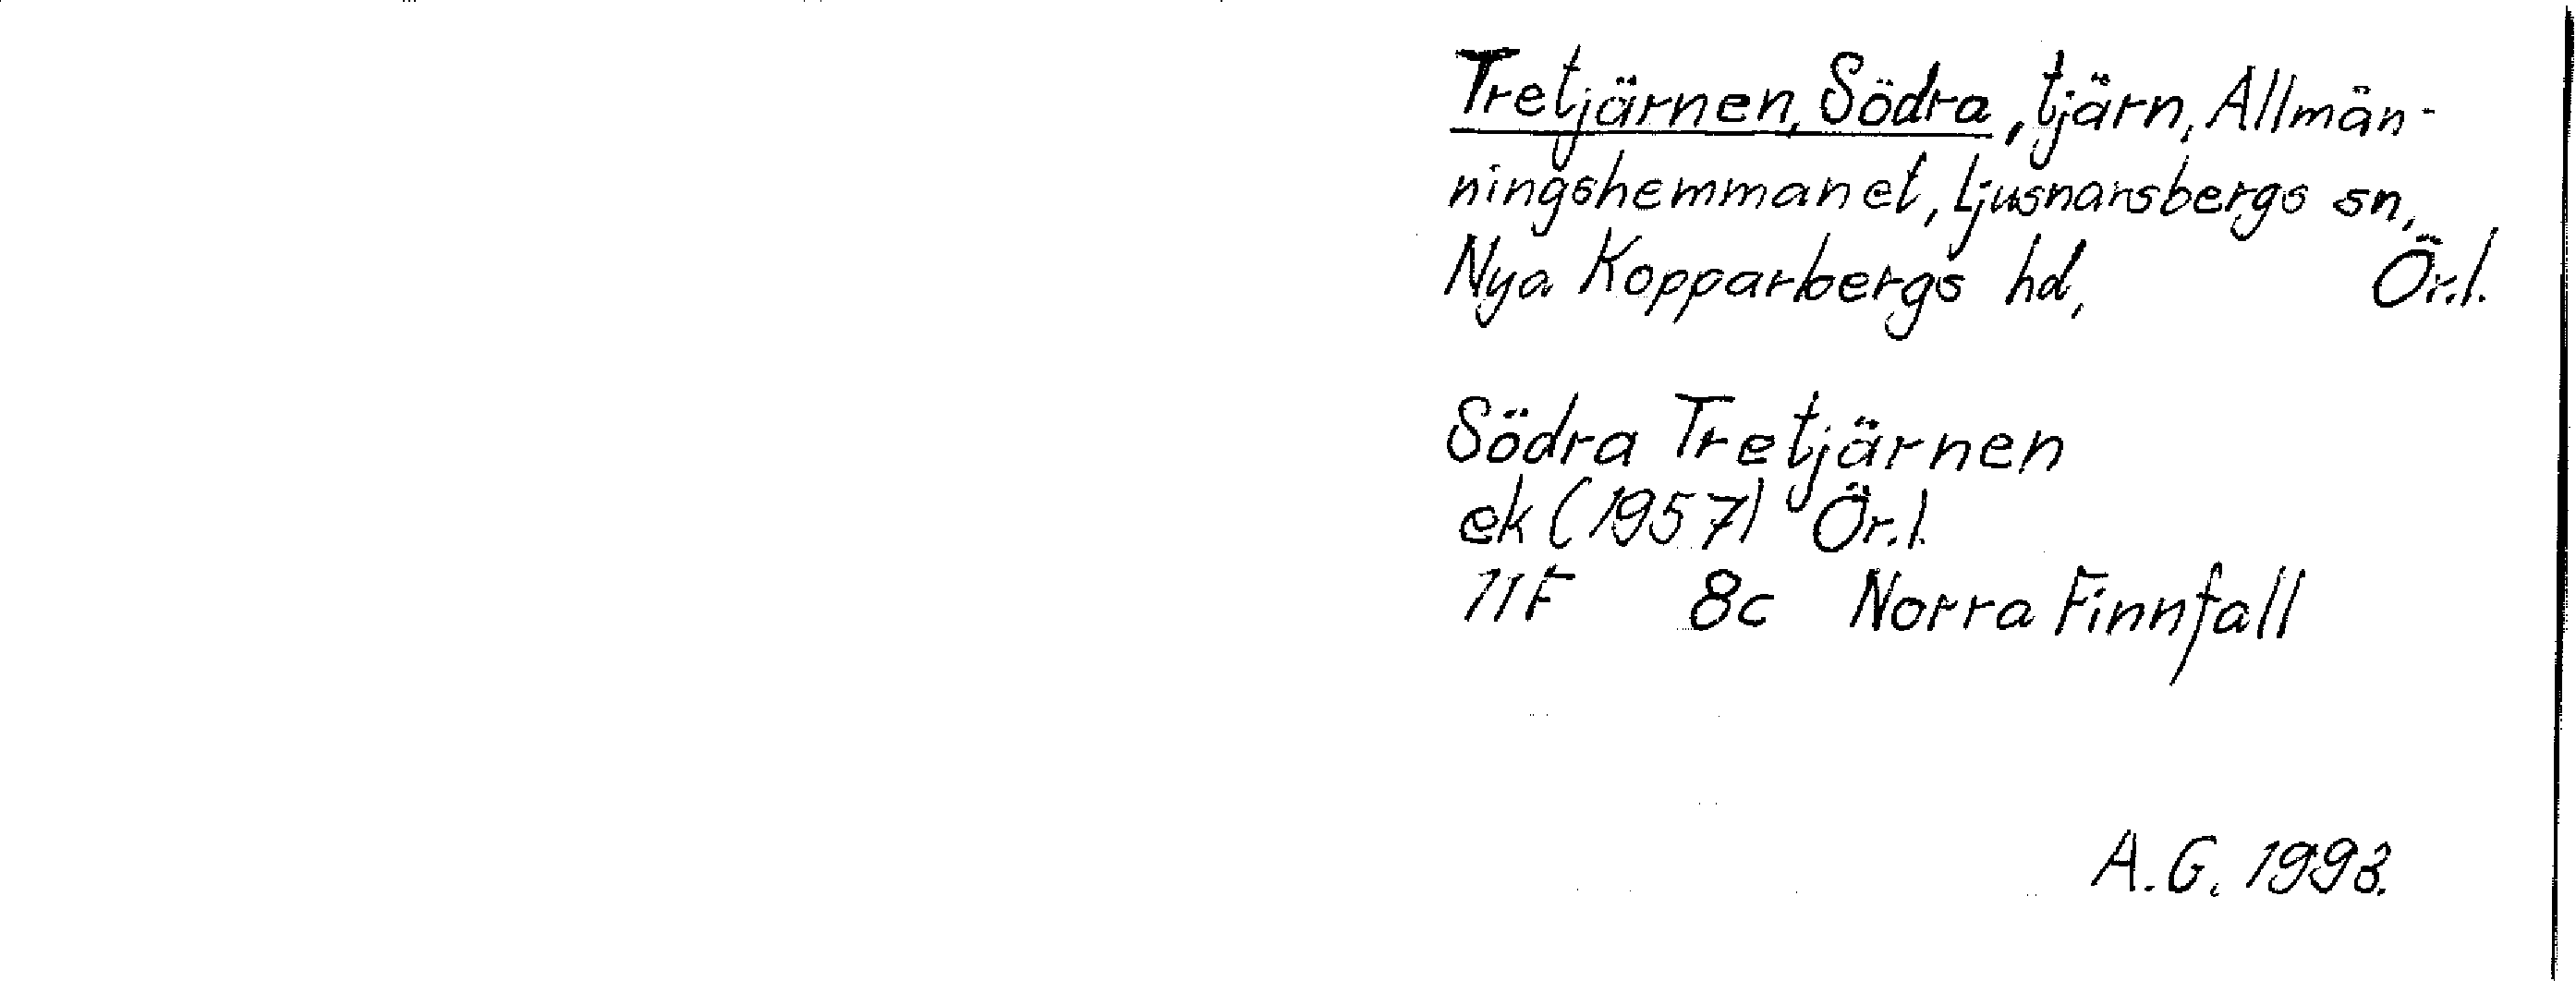 Tretjärnen, Södra, tjärn, Allmän-
ningshemmanet, Ljusnarsbergs sn,
Nya Kopparbergs hd, Ör.l.
Södra Tretjärnen
ek (1957) Ör.l.
11F 8c Norra Finnfall
A.G. 1993.